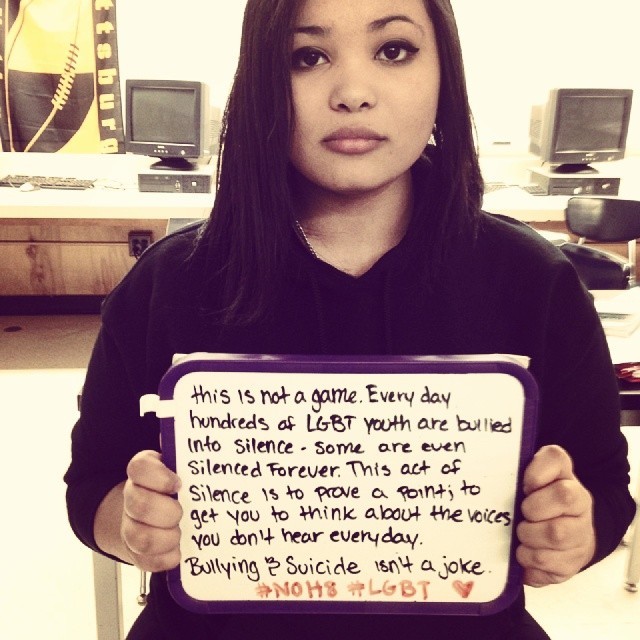 ttsburg
this is not a game. Every day
hundreds of LGBT youth are bullied
into silence - some are even
silenced forever. This act of
silence is to prove a point; to
get you to think about the voices
you don't hear everyday.
Bullying & Suicide isn't a joke.
#NOH8 #LGBT ♥